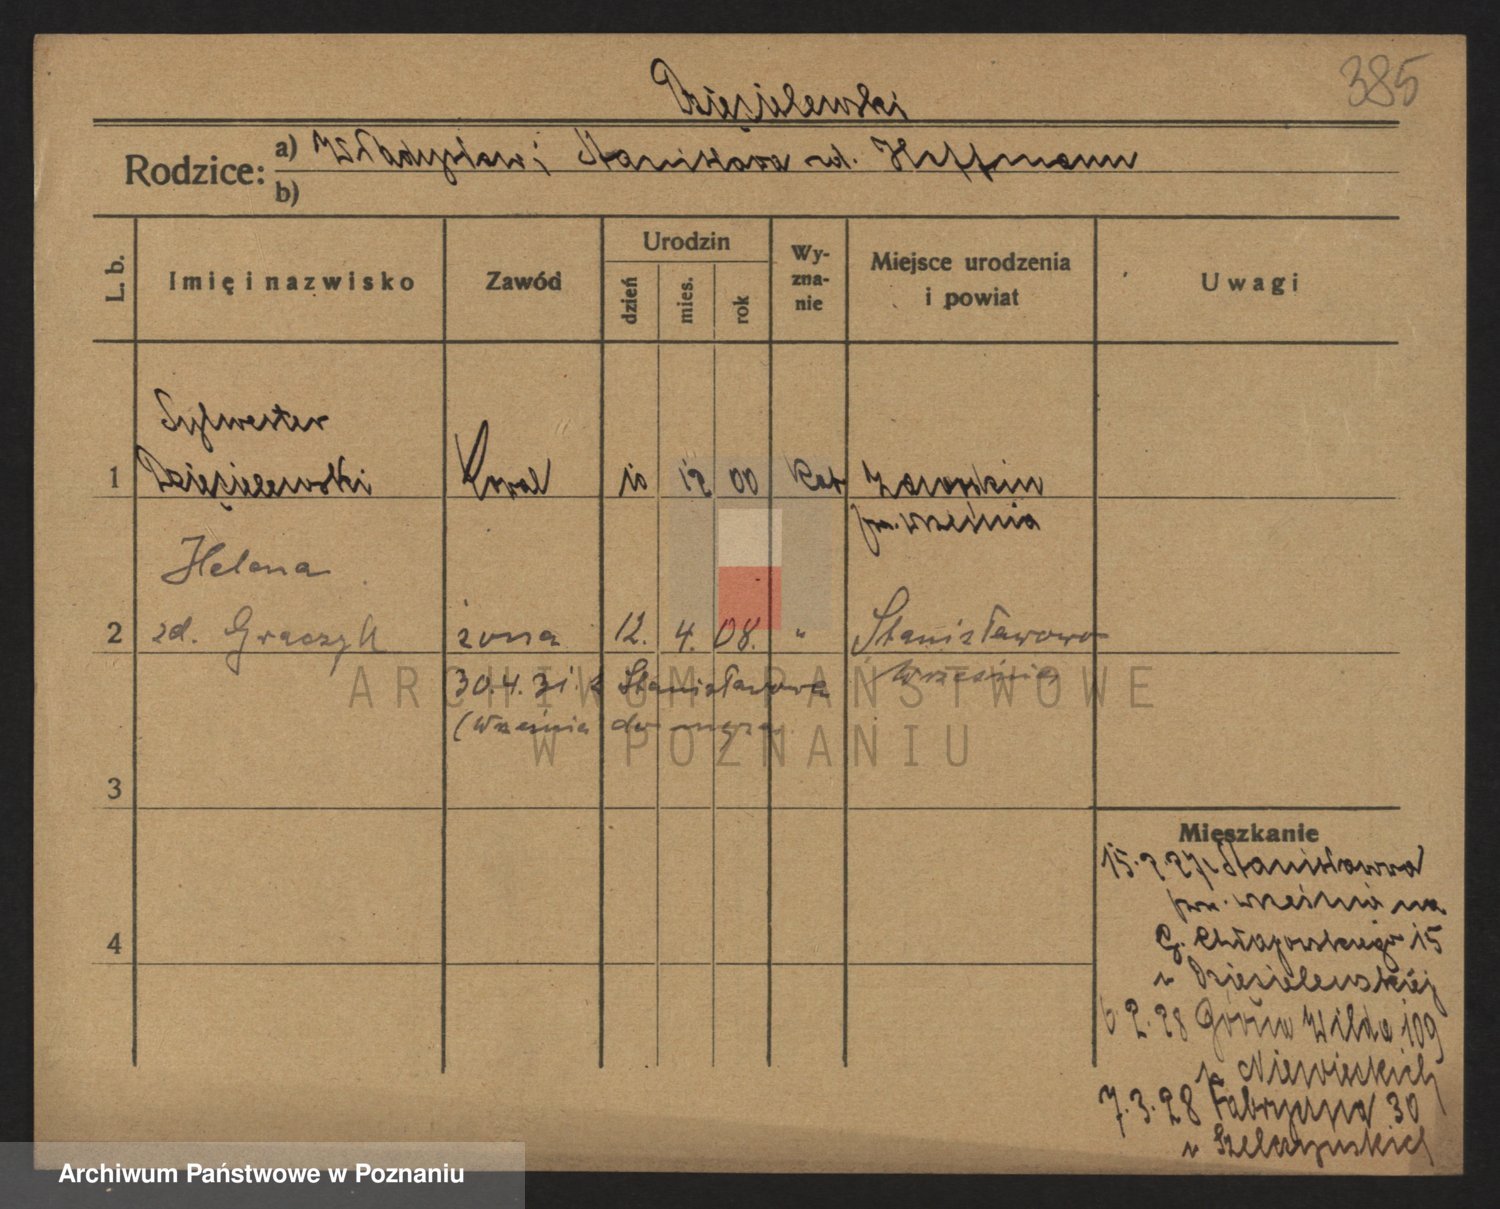 385
Dzięzielewski
Rodzice: a) Władysław i Stanisława zd. Hoffmann
b)
L. b. Imię i nazwisko Zawód Urodzin dzień mies. rok Wy-zna-nie Miejsce urodzenia i powiat Uwagi
Sylwester
1 Dzięzielewski Kowal 10 12 00 Kat
pow. Września
Helena
2 zd. Graczyk żona 12. 4. 08. " Stanisławowo
30.4.31. z Stanisławowa Września
(Września do męża
3
Mieszkanie
15.2.27 z Stanisławowa
pow. Września na
G. Chłapowskiego 15
4
u Dzięzielewskiej
6.2.28 Górna Wilda 109
Niewieskich
7.3.28 Fabryczna 30
u
ARCHIWUM PAŃSTWOWE
W POZNANIU
Archiwum Państwowe w Poznaniu